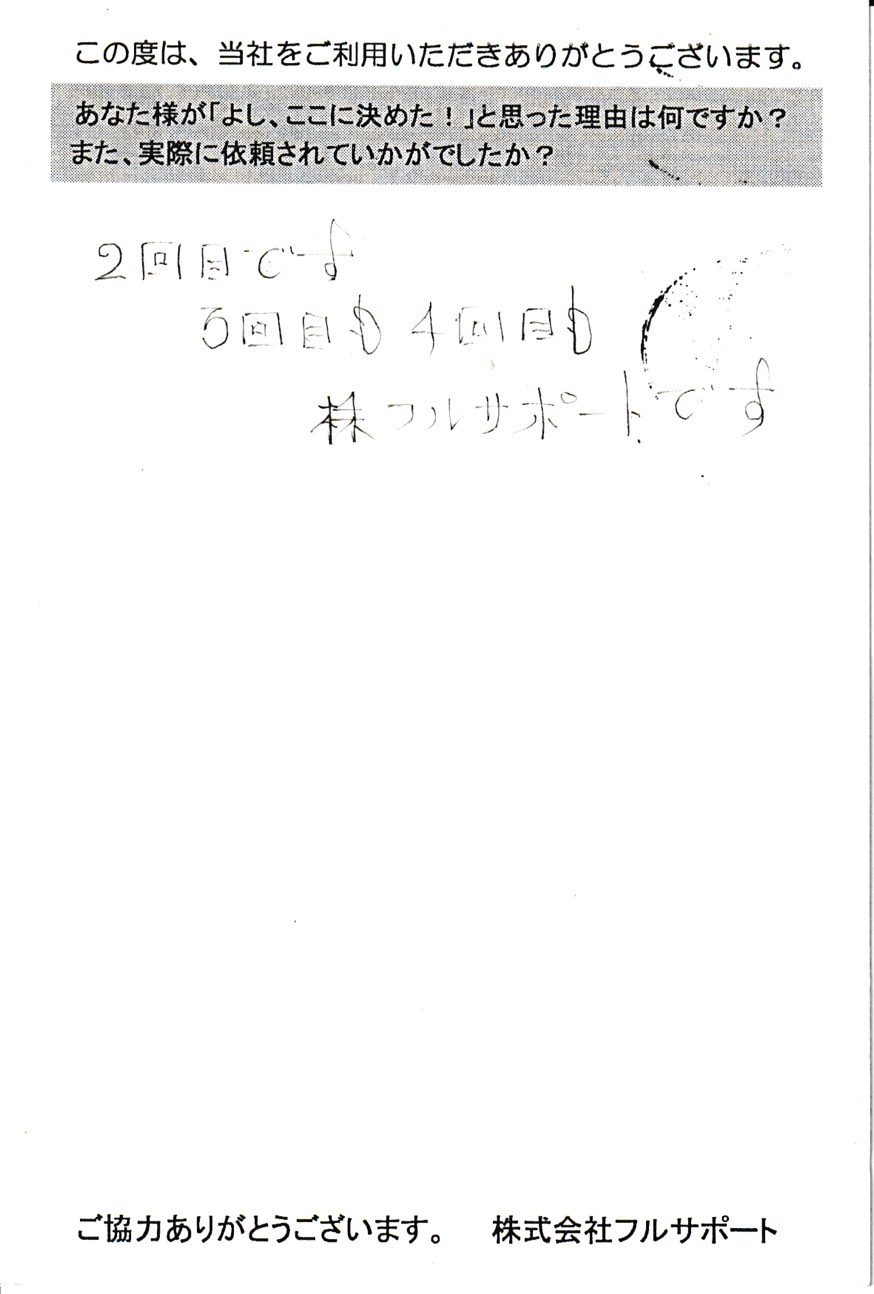 この度は、当社をご利用いただきありがとうございます。
あなた様が「よし、ここに決めた！」と思った理由は何ですか？
また、実際に依頼されていかがでしたか？
2回目です
3回目も4回目も
株フルサポートです
ご協力ありがとうございます。　株式会社フルサポート